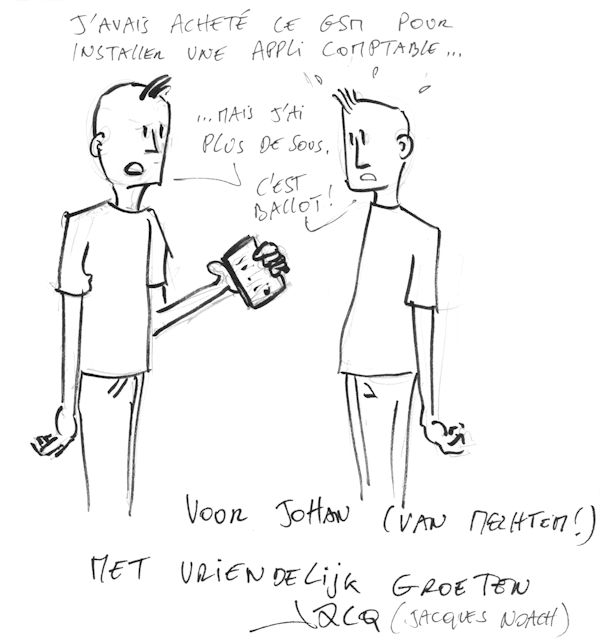 J'AVAIS ACHETÉ CE GSM POUR
INSTALLER UNE APPLI COMPTABLE...
...MAIS J'AI
PLUS DE SOUS.
C'EST
BALLOT!
VOOR JOHAN (VAN MECHTEM!)
MET VRIENDELIJK GROETEN
(JACQUES NOACH)